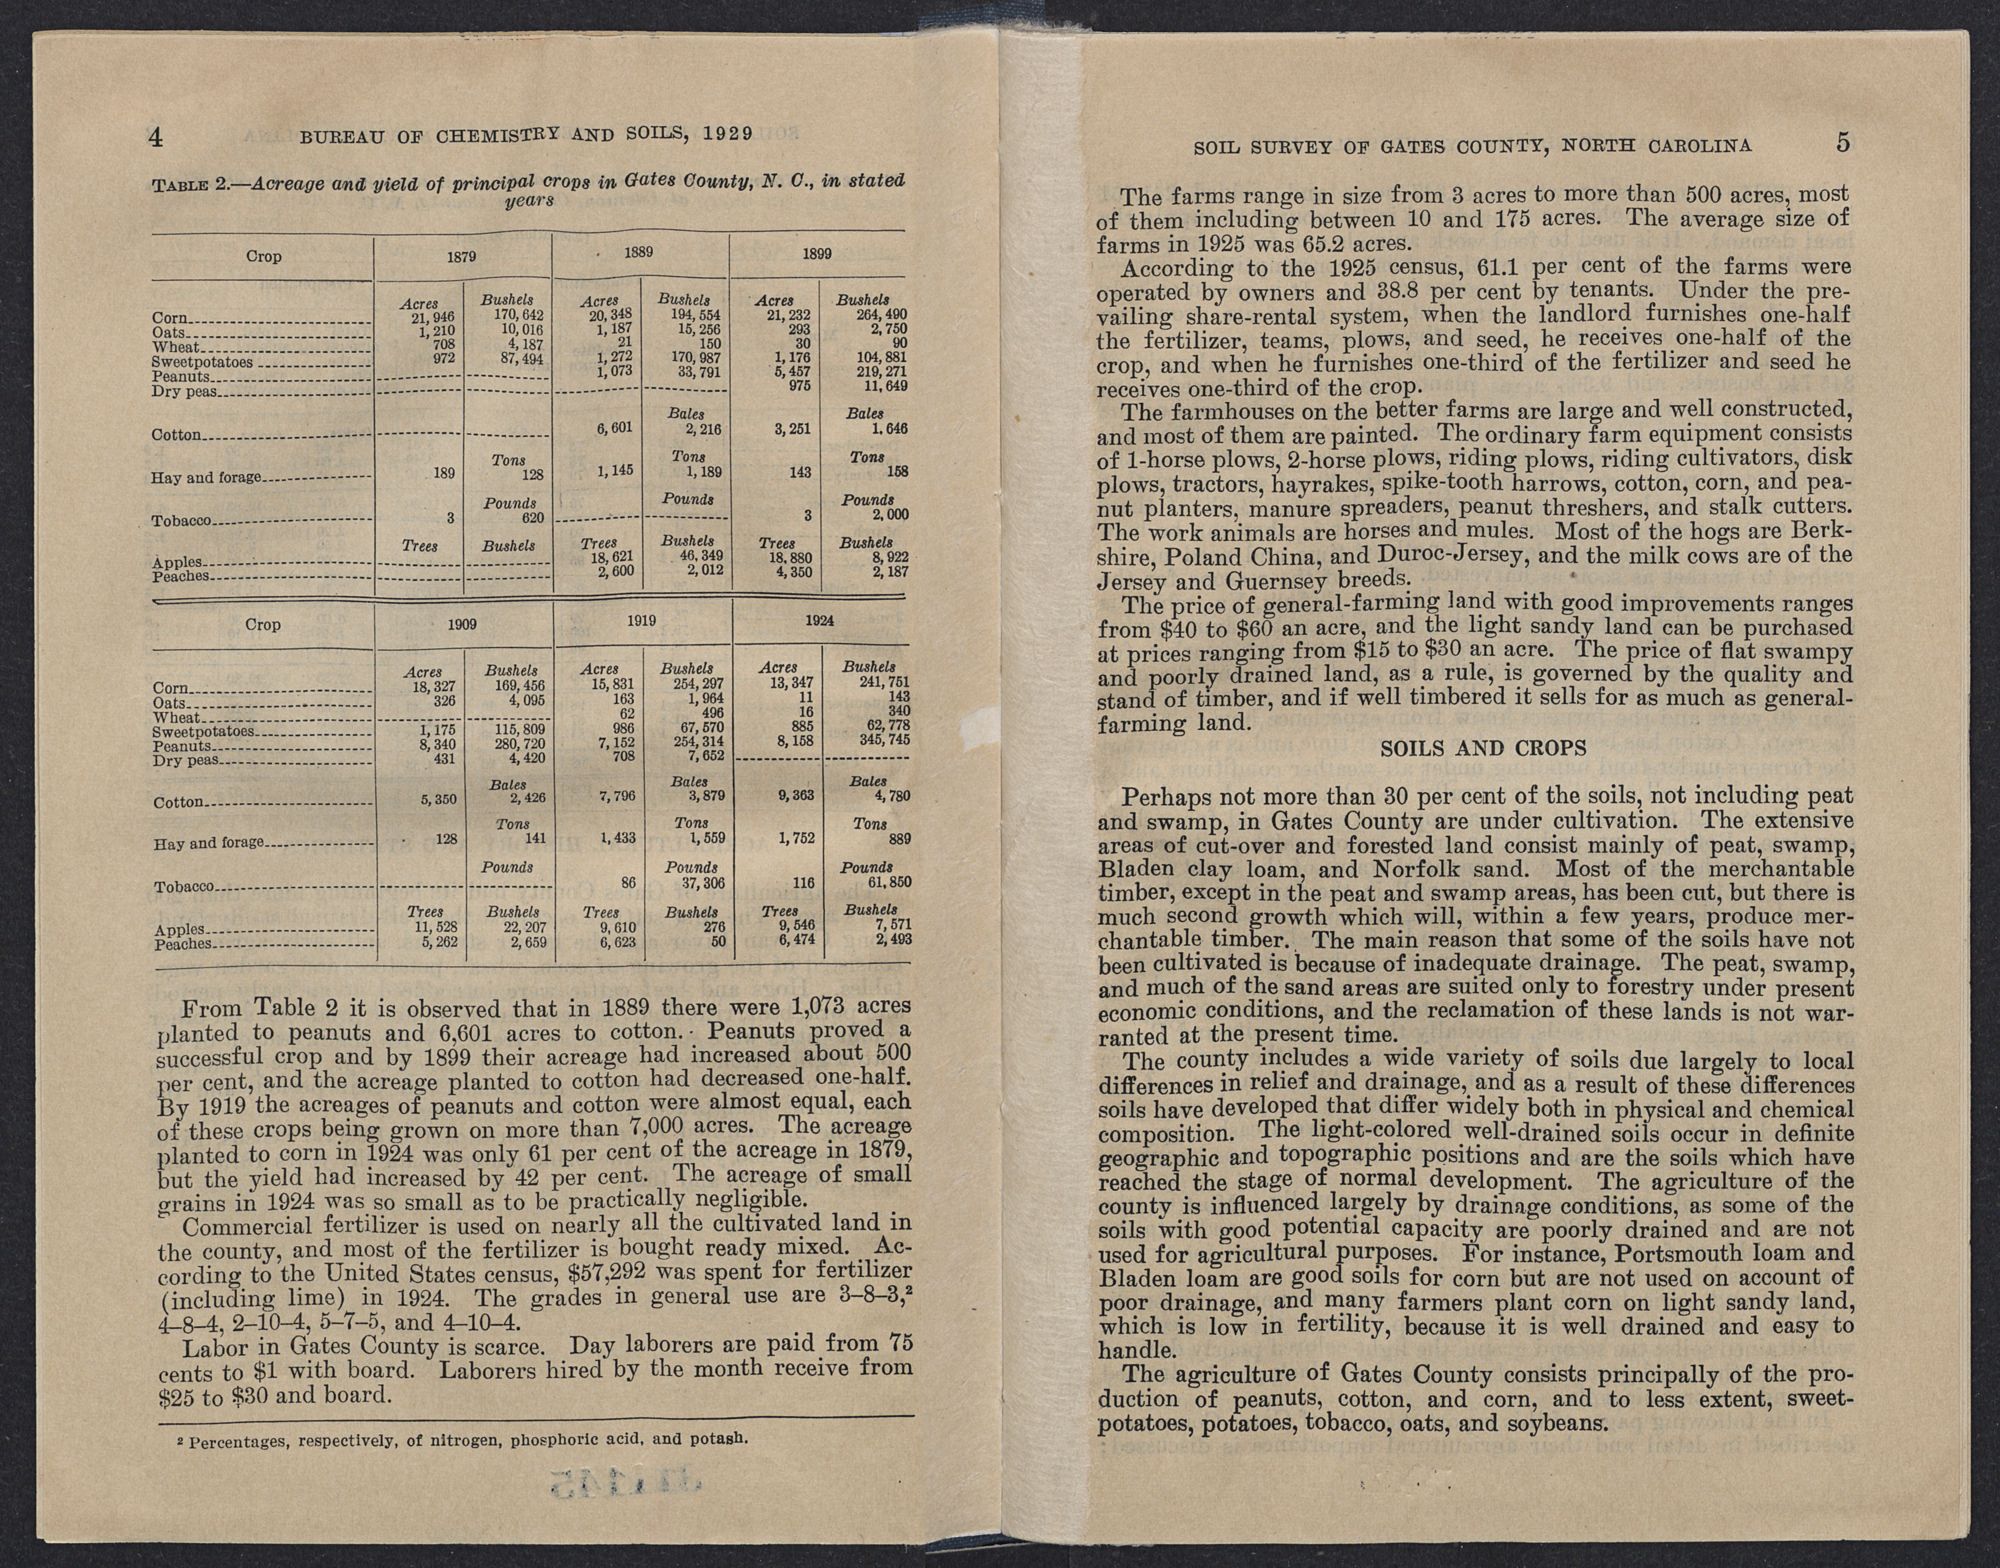 4 BUREAU OF CHEMISTRY AND SOILS, 1929
TABLE 2.—Acreage and yield of principal crops in Gates County, N. C., in stated
years
Crop 1879 1889 1899
Acres Bushels Acres Bushels Acres Bushels
Corn 21,946 170,642 20,348 194,554 21,232 264,490
Oats 1,210 10,016 1,187 15,256 293 2,750
Wheat 708 4,187 21 150 30 90
Sweetpotatoes 972 87,494 1,272 170,987 1,176 104,881
Peanuts 1,073 33,791 5,457 219,271
Dry peas 975 11,649
Bales Bales
Cotton 6,601 2,216 3,251 1,646
Tons Tons Tons
Hay and forage 189 128 1,145 1,189 143 158
Pounds Pounds Pounds
Tobacco 3 620 3 2,000
Trees Bushels Trees Bushels Trees Bushels
Apples 18,621 46,349 18,880 8,922
Peaches 2,600 2,012 4,350 2,187
Crop 1909 1919 1924
Acres Bushels Acres Bushels Acres Bushels
Corn 18,327 169,456 15,831 254,297 13,347 241,751
Oats 326 4,095 163 1,964 11 143
Wheat 62 496 16 340
Sweetpotatoes 1,175 115,809 986 67,570 885 62,778
Peanuts 8,340 280,720 7,152 254,314 8,158 345,745
Dry peas 431 4,420 708 7,652
Bales Bales Bales
Cotton 5,350 2,426 7,796 3,879 9,363 4,780
Tons Tons Tons
Hay and forage 128 141 1,433 1,559 1,752 889
Pounds Pounds Pounds
Tobacco 86 37,306 116 61,850
Trees Bushels Trees Bushels Trees Bushels
Apples 11,528 22,207 9,610 276 9,546 7,571
Peaches 5,262 2,659 6,623 50 6,474 2,493
From Table 2 it is observed that in 1889 there were 1,073 acres
planted to peanuts and 6,601 acres to cotton. Peanuts proved a
successful crop and by 1899 their acreage had increased about 500
per cent, and the acreage planted to cotton had decreased one-half.
By 1919 the acreages of peanuts and cotton were almost equal, each
of these crops being grown on more than 7,000 acres. The acreage
planted to corn in 1924 was only 61 per cent of the acreage in 1879,
but the yield had increased by 42 per cent. The acreage of small
grains in 1924 was so small as to be practically negligible.
Commercial fertilizer is used on nearly all the cultivated land in
the county, and most of the fertilizer is bought ready mixed. Ac-
cording to the United States census, $57,292 was spent for fertilizer
(including lime) in 1924. The grades in general use are 3–8–3,²
4–8–4, 2–10–4, 5–7–5, and 4–10–4.
Labor in Gates County is scarce. Day laborers are paid from 75
cents to $1 with board. Laborers hired by the month receive from
$25 to $30 and board.
² Percentages, respectively, of nitrogen, phosphoric acid, and potash.
SOIL SURVEY OF GATES COUNTY, NORTH CAROLINA 5
The farms range in size from 3 acres to more than 500 acres, most
of them including between 10 and 175 acres. The average size of
farms in 1925 was 65.2 acres.
According to the 1925 census, 61.1 per cent of the farms were
operated by owners and 38.8 per cent by tenants. Under the pre-
vailing share-rental system, when the landlord furnishes one-half
the fertilizer, teams, plows, and seed, he receives one-half of the
crop, and when he furnishes one-third of the fertilizer and seed he
receives one-third of the crop.
The farmhouses on the better farms are large and well constructed,
and most of them are painted. The ordinary farm equipment consists
of 1-horse plows, 2-horse plows, riding plows, riding cultivators, disk
plows, tractors, hayrakes, spike-tooth harrows, cotton, corn, and pea-
nut planters, manure spreaders, peanut threshers, and stalk cutters.
The work animals are horses and mules. Most of the hogs are Berk-
shire, Poland China, and Duroc-Jersey, and the milk cows are of the
Jersey and Guernsey breeds.
The price of general-farming land with good improvements ranges
from $40 to $60 an acre, and the light sandy land can be purchased
at prices ranging from $15 to $30 an acre. The price of flat swampy
and poorly drained land, as a rule, is governed by the quality and
stand of timber, and if well timbered it sells for as much as general-
farming land.
SOILS AND CROPS
Perhaps not more than 30 per cent of the soils, not including peat
and swamp, in Gates County are under cultivation. The extensive
areas of cut-over and forested land consist mainly of peat, swamp,
Bladen clay loam, and Norfolk sand. Most of the merchantable
timber, except in the peat and swamp areas, has been cut, but there is
much second growth which will, within a few years, produce mer-
chantable timber. The main reason that some of the soils have not
been cultivated is because of inadequate drainage. The peat, swamp,
and much of the sand areas are suited only to forestry under present
economic conditions, and the reclamation of these lands is not war-
ranted at the present time.
The county includes a wide variety of soils due largely to local
differences in relief and drainage, and as a result of these differences
soils have developed that differ widely both in physical and chemical
composition. The light-colored well-drained soils occur in definite
geographic and topographic positions and are the soils which have
reached the stage of normal development. The agriculture of the
county is influenced largely by drainage conditions, as some of the
soils with good potential capacity are poorly drained and are not
used for agricultural purposes. For instance, Portsmouth loam and
Bladen loam are good soils for corn but are not used on account of
poor drainage, and many farmers plant corn on light sandy land,
which is low in fertility, because it is well drained and easy to
handle.
The agriculture of Gates County consists principally of the pro-
duction of peanuts, cotton, and corn, and to less extent, sweet-
potatoes, potatoes, tobacco, oats, and soybeans.